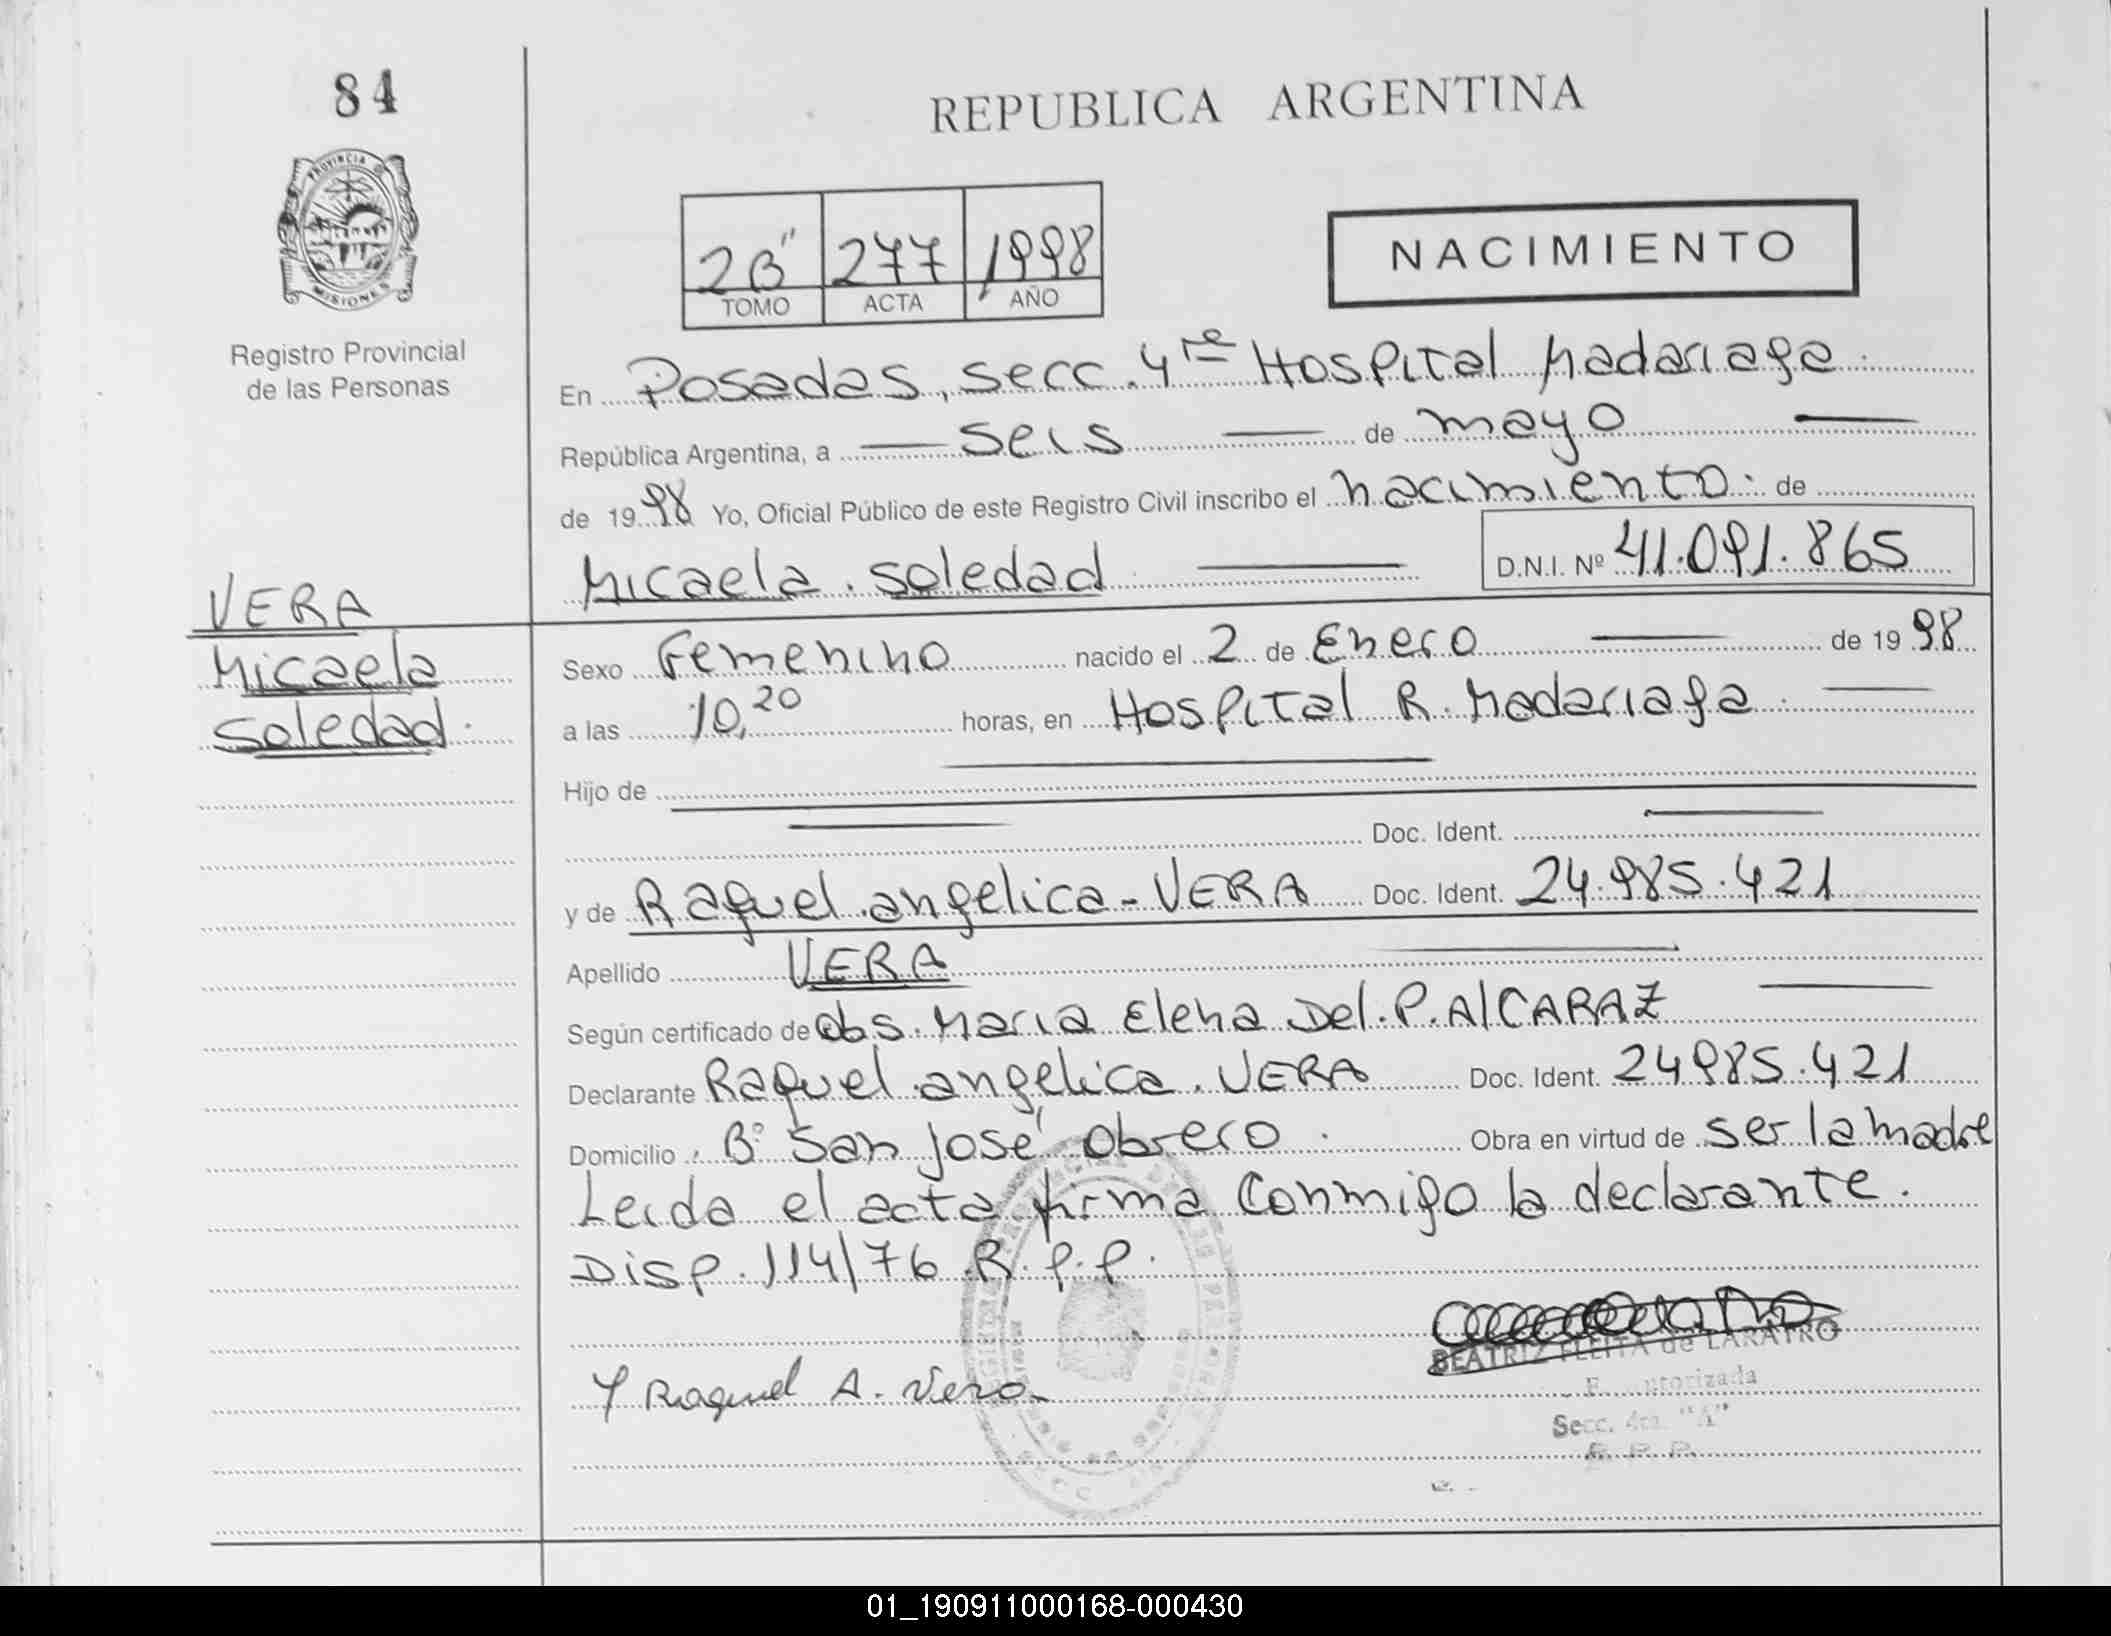 84
REPUBLICA ARGENTINA
PROVINCIA
MISIONES
Registro Provincial
de las Personas
2B" 277 1998
TOMO ACTA AÑO
NACIMIENTO
En Posadas, secc. 4ta Hospital Madariaga.
República Argentina, a — seis — de mayo —
de 1998 Yo, Oficial Público de este Registro Civil inscribo el nacimiento. de
Micaela. Soledad. — D.N.I. Nº 41.091.865
VERA
Micaela
Soledad.
Sexo Femenino nacido el 2 de Enero — de 1998
a las 10,20 horas, en Hospital R. Madariaga. —
Hijo de —
— Doc. Ident. —
y de Raquel angelica - VERA Doc. Ident. 24.985.421
Apellido VERA —
Según certificado de obs. Maria Elena Del. P. AlCARAZ —
Declarante Raquel angelica. VERA Doc. Ident. 24985.421
Domicilio Bº San José Obrero. Obra en virtud de ser la madre
Leida el acta firma Conmigo la declarante.
Disp. 114/76 R.P.P.
BEATRIZ FLEITA de LARATRO
Raquel A. Vera
Secc. 4ta. "A"
R. P. P.
01_190911000168-000430